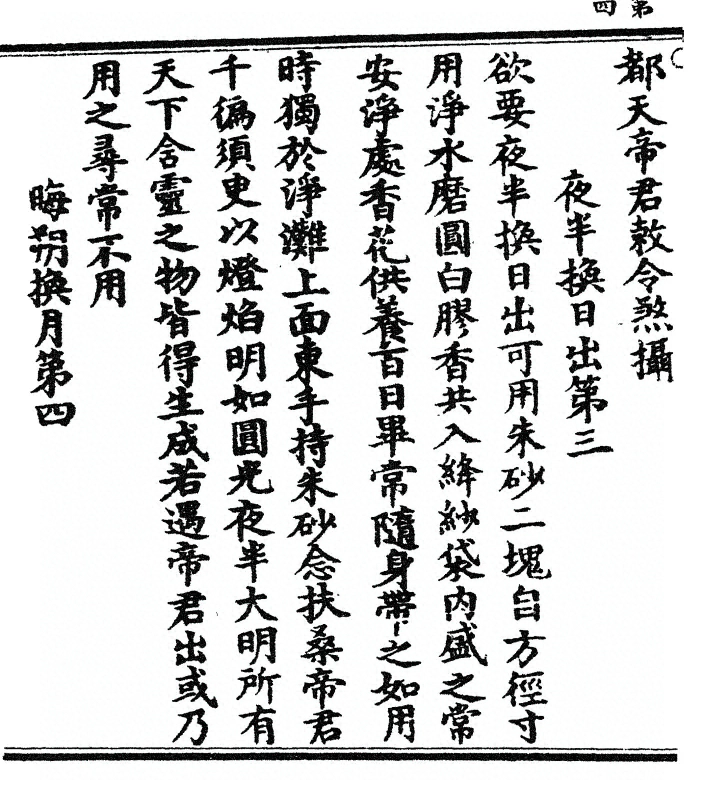 第
四
都天帝君敕令煞攝
夜半換日出第三
欲要夜半換日出可用朱砂二塊各方徑寸
用淨水磨圓白膠香共入絳紗袋內盛之常
安淨處香花供養百日畢常隨身帶之如用
時獨於淨灘上面東手持朱砂念扶桑帝君
千徧須臾以燈焰明如圓光夜半大明所有
天下含靈之物皆得生成若遇帝君出或乃
用之尋常不用
晦朔換月第四